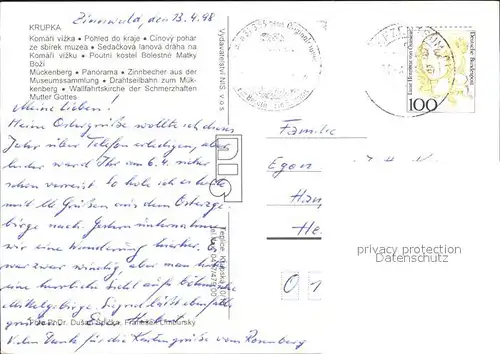 Zinnwald, den 13.4.98
KRUPKA
Komáří vížka • Pohled do kraje • Cínový pohár
ze sbírek muzea • Sedačková lanová dráha na
Komáří vížku • Poutní kostel Bolestné Matky
Boží
Mückenberg • Panorama • Zinnbecher aus der
Museumssammlung • Drahtseilbahn zum Mük-
kenberg • Wallfahrtskirche der Schmerzhaften
Mutter Gottes
Meine Lieben!
Meine Ostergrüße wollte ich dieses
Jahr über Telefon erledigen, aber
leider ward Ihr am 6.4. sicher
schon verreist. So hole ich es heute
mit lb. Grüßen aus dem Osterzge-
birge nach. Gestern unternahmen
wir eine Wanderung hierher. Es
war zwar windig, aber man hatte
eine herrliche Sicht aufs böhmische
Mittelgebirge. Sigrid läßt ebenfalls
grüßen. Euer Herbert
V. Dank für die Kartengrüße vom Rosenberg
Foto PhDr. Dušan Špička, František Limburský
Vydavatelství NIS
Teplice
Deutsche Bundespost
100
Familie
Egon
0 1
privacy protection
Datenschutz